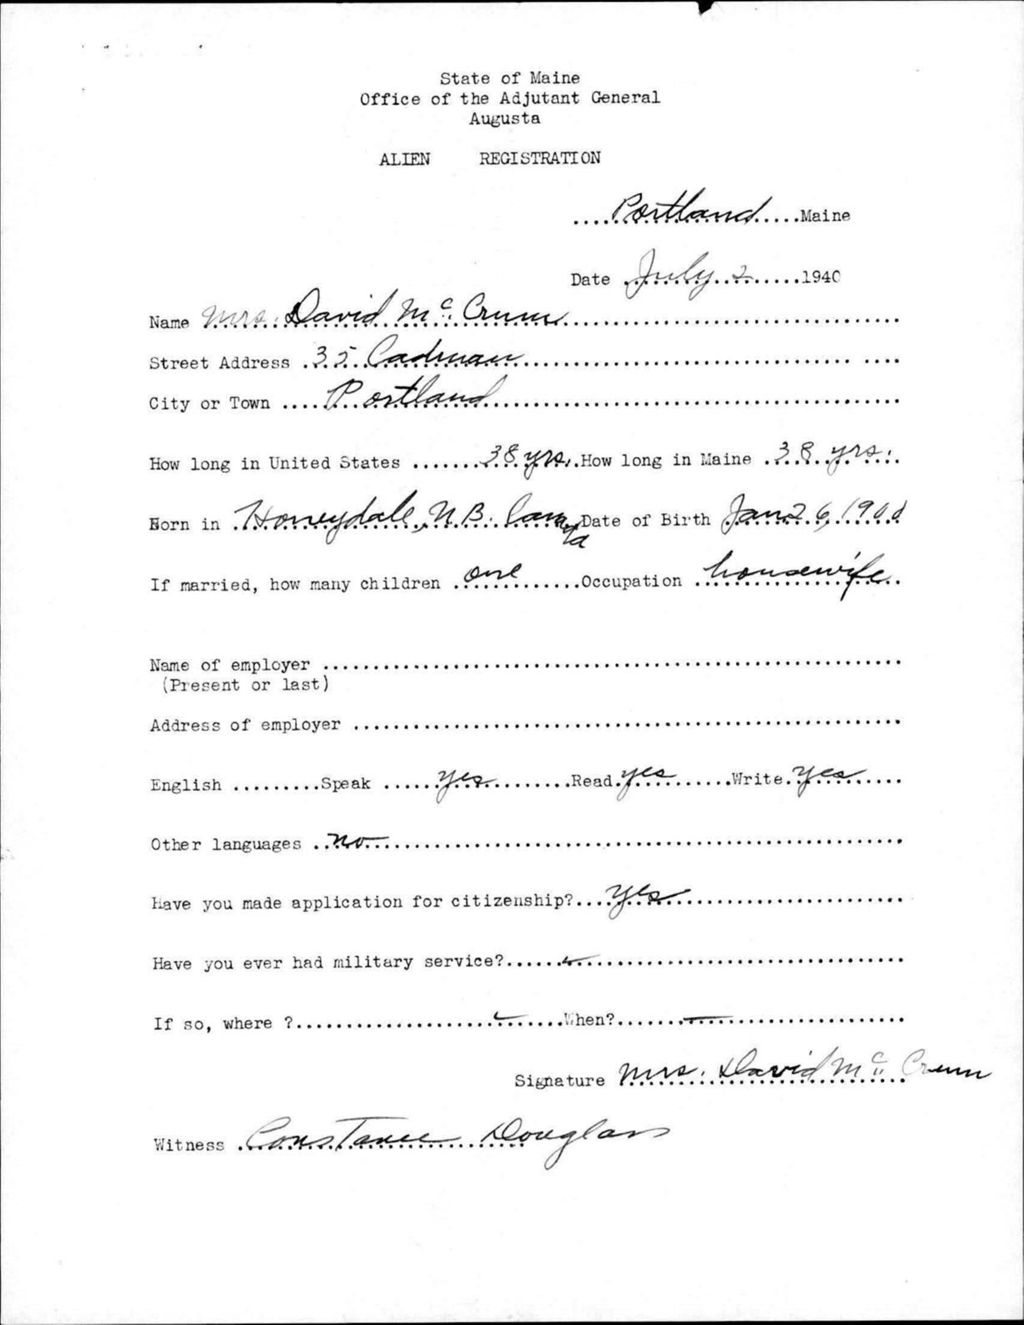 State of Maine
Office of the Adjutant General
Augusta
ALIEN REGISTRATION
....Portland.....Maine
Date July 2 1940
Name Mrs. David Mc. Crum
Street Address 35 Cadman
City or Town Portland
How long in United States 38 yrs. How long in Maine 38 yrs.
Born in Honeydale, N.B. Canada Date of Birth Jan 26, 1900
If married, how many children one Occupation housewife
Name of employer
(Present or last)
Address of employer
English Speak yes Read yes Write yes
Other languages no
Have you made application for citizenship? yes
Have you ever had military service? -
If so, where ? - When? -
Signature Mrs. David Mc. Crum
Witness Constance Douglass